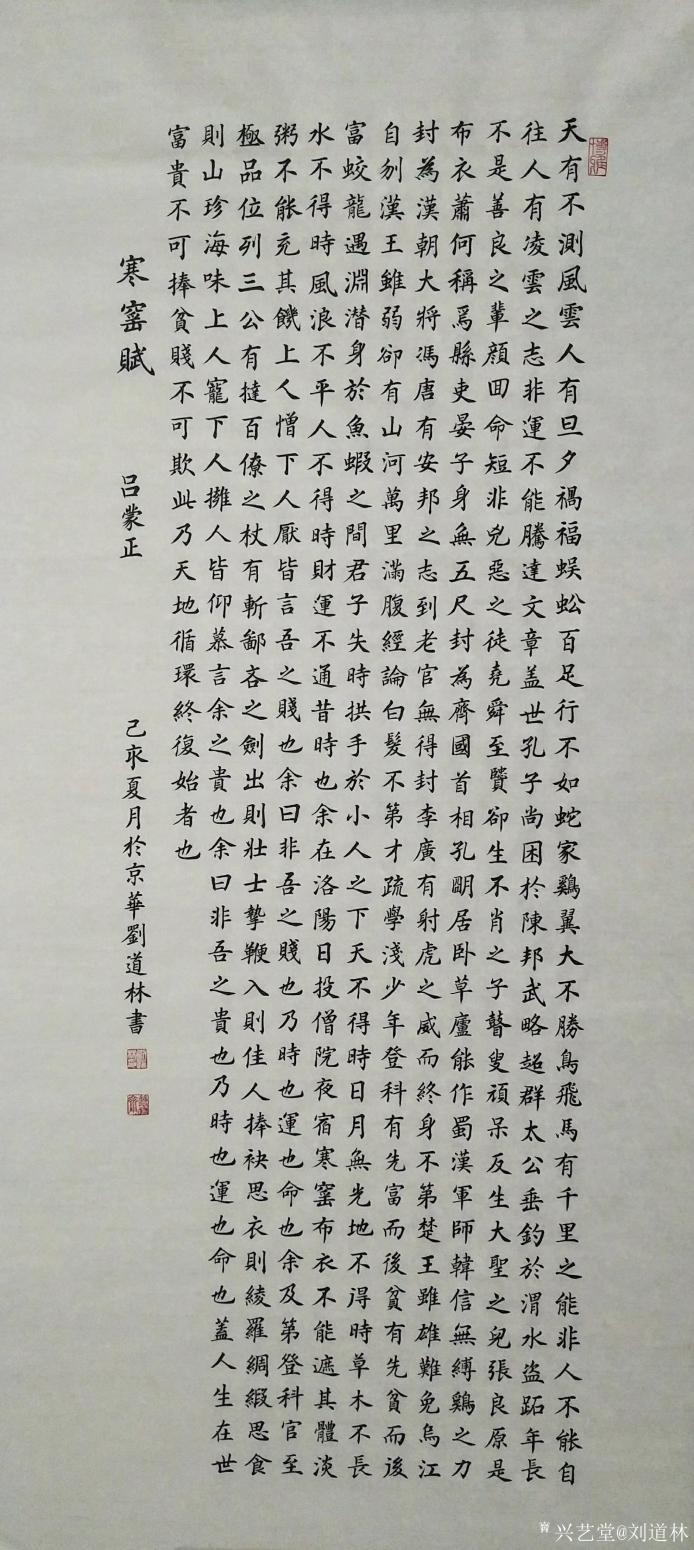 天有不測風雲人有旦夕禍福蜈蚣百足行不如蛇家鷄翼大不勝鳥飛馬有千里之能非人不能自
往人有凌雲之志非運不能騰達文章盖世孔子尚困於陳邦武略超群太公垂釣於渭水盗跖年長
不是善良之輩顔回命短非兇惡之徒堯舜至賢卻生不肖之子瞽叟頑呆反生大聖之兒張良原是
布衣蕭何稱爲縣吏晏子身無五尺封為齊國首相孔明居卧草廬能作蜀漢軍師韓信無縛鷄之力
封為漢朝大將馮唐有安邦之志到老官無得封李廣有射虎之威而終身不第楚王雖雄難免烏江
自刎漢王雖弱卻有山河萬里滿腹經論白髮不第才疏學淺少年登科有先富而後貧有先貧而後
富蛟龍遇淵潜身於魚蝦之間君子失時拱手於小人之下天不得時日月無光地不得時草木不長
水不得時風浪不平人不得時財運不通昔時也余在洛陽日投僧院夜宿寒窰布衣不能遮其體淡
粥不能充其饑上人憎下人厭皆言吾之賤也余曰非吾之賤也乃時也運也命也余及第登科官至
極品位列三公有撻百僚之杖有斬鄙吝之劍出則壯士摯鞭入則佳人捧袂思衣則綾羅綢緞思食
則山珍海味上人寵下人擁人皆仰慕言余之貴也余曰非吾之貴也乃時也運也命也蓋人生在世
富貴不可捧貧賤不可欺此乃天地循環終復始者也
寒窰賦
吕蒙正
己亥夏月於京華劉道林書
兴艺堂@刘道林